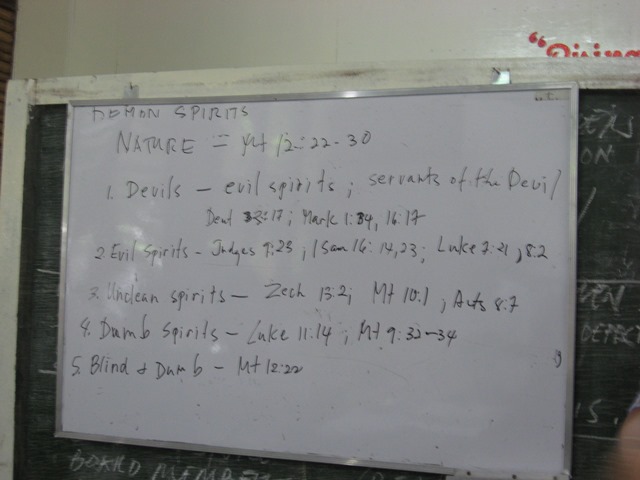 "Rising
DEMON SPIRITS
NATURE = Mt 12:22-30
1. Devils - evil spirits; servants of the Devil
Deut 32:17; Mark 1:34, 16:17
2. Evil Spirits - Judges 9:23; 1 Sam 16:14,23; Luke 7:21, 8:2
3. Unclean spirits - Zech 13:2; Mt 10:1, Acts 8:7
4. Dumb Spirits - Luke 11:14; Mt 9:32-34
5. Blind & Dumb - Mt 12:22
BOARD MEMBER